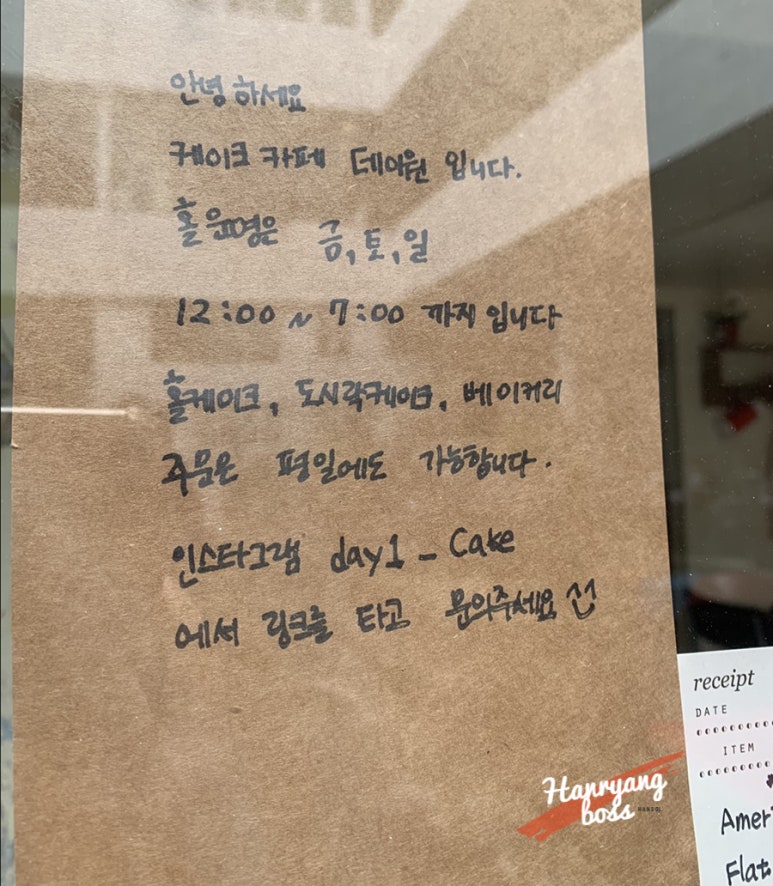 안녕하세요
케이크 카페 데이원 입니다.
홀 운영은 금, 토, 일
12:00 ~ 7:00 까지 입니다
홀케이크, 도시락케이크, 베이커리
주문은 평일에도 가능합니다.
인스타그램 day1_Cake
에서 링크를 타고 문의주세요
receipt
DATE
ITEM
Ameri
Flat
Hanryang
boss